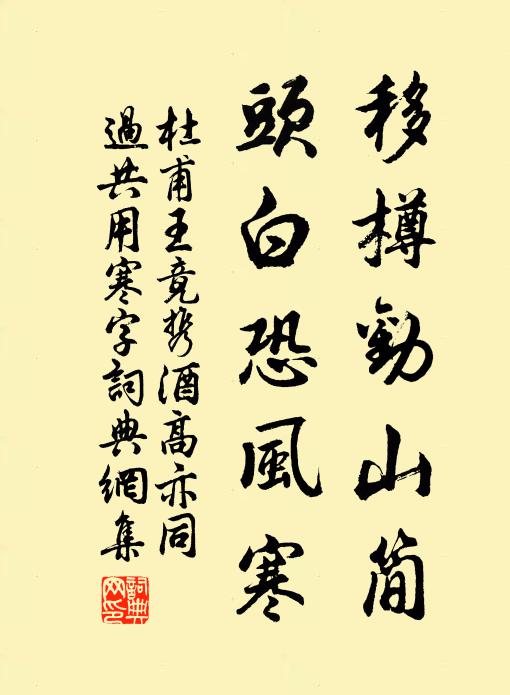 移樽勸山簡
頭白恐風寒
杜甫王竟攜酒高亦同
過共用寒字詞典網集
詞典